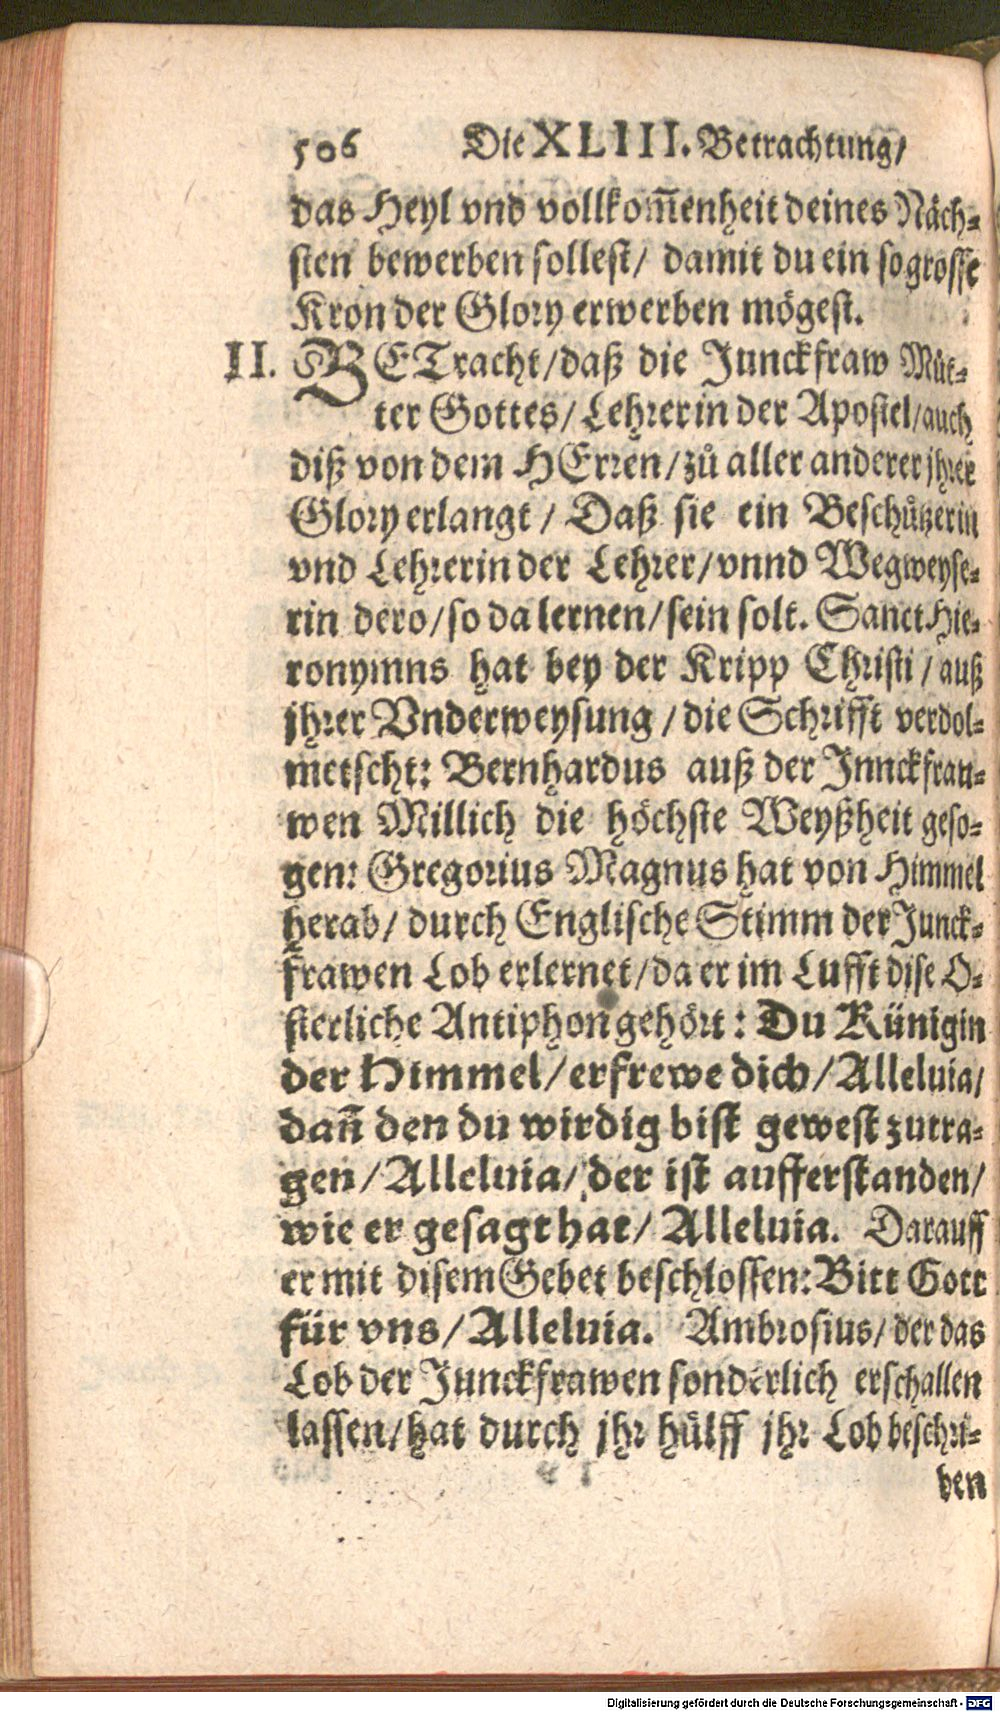 506 Die XLIII. Betrachtung/
das Heyl vnd vollkom̃enheit deines Nåch-
sten bewerben sollest/ damit du ein so grosse
Kron der Glory erwerben mögest.
II. BETracht/daß die Junckfraw Můt-
ter Gottes/Lehrerin der Apostel/auch
diß von dem HErren/zů aller anderer jhrer
Glory erlangt/ Daß sie ein Beschůtzerin
vnd Lehrerin der Lehrer/vnnd Wegweyse-
rin dero/so da lernen/sein solt. Sanct Hie-
ronymns hat bey der Kripp Christi/auß
jhrer Vnderweysung/die Schrifft verdol-
metscht: Bernhardus auß der Jnnckfrau-
wen Millich die höchste Weyßheit geso-
gen: Gregorius Magnus hat von Himmel
herab/ durch Englische Stimm der Junck-
frawen Lob erlernet/da er im Lufft dise O-
sterliche Antiphon gehört: Du Künigin
der Himmel/erfrewe dich/Alleluia/
dan̄ den du wirdig bist gewest zutra-
gen/Alleluia/der ist aufferstanden/
wie er gesagt hat/Alleluia. Darauff
er mit disem Gebet beschlossen: Bitt Gott
für vns/Alleluia. Ambrosius/der das
Lob der Junckfrawen sonderlich erschallen
lassen/hat durch jhr hůlff jhr Lob beschri-
ben
Digitalisierung gefördert durch die Deutsche Forschungsgemeinschaft - DFG